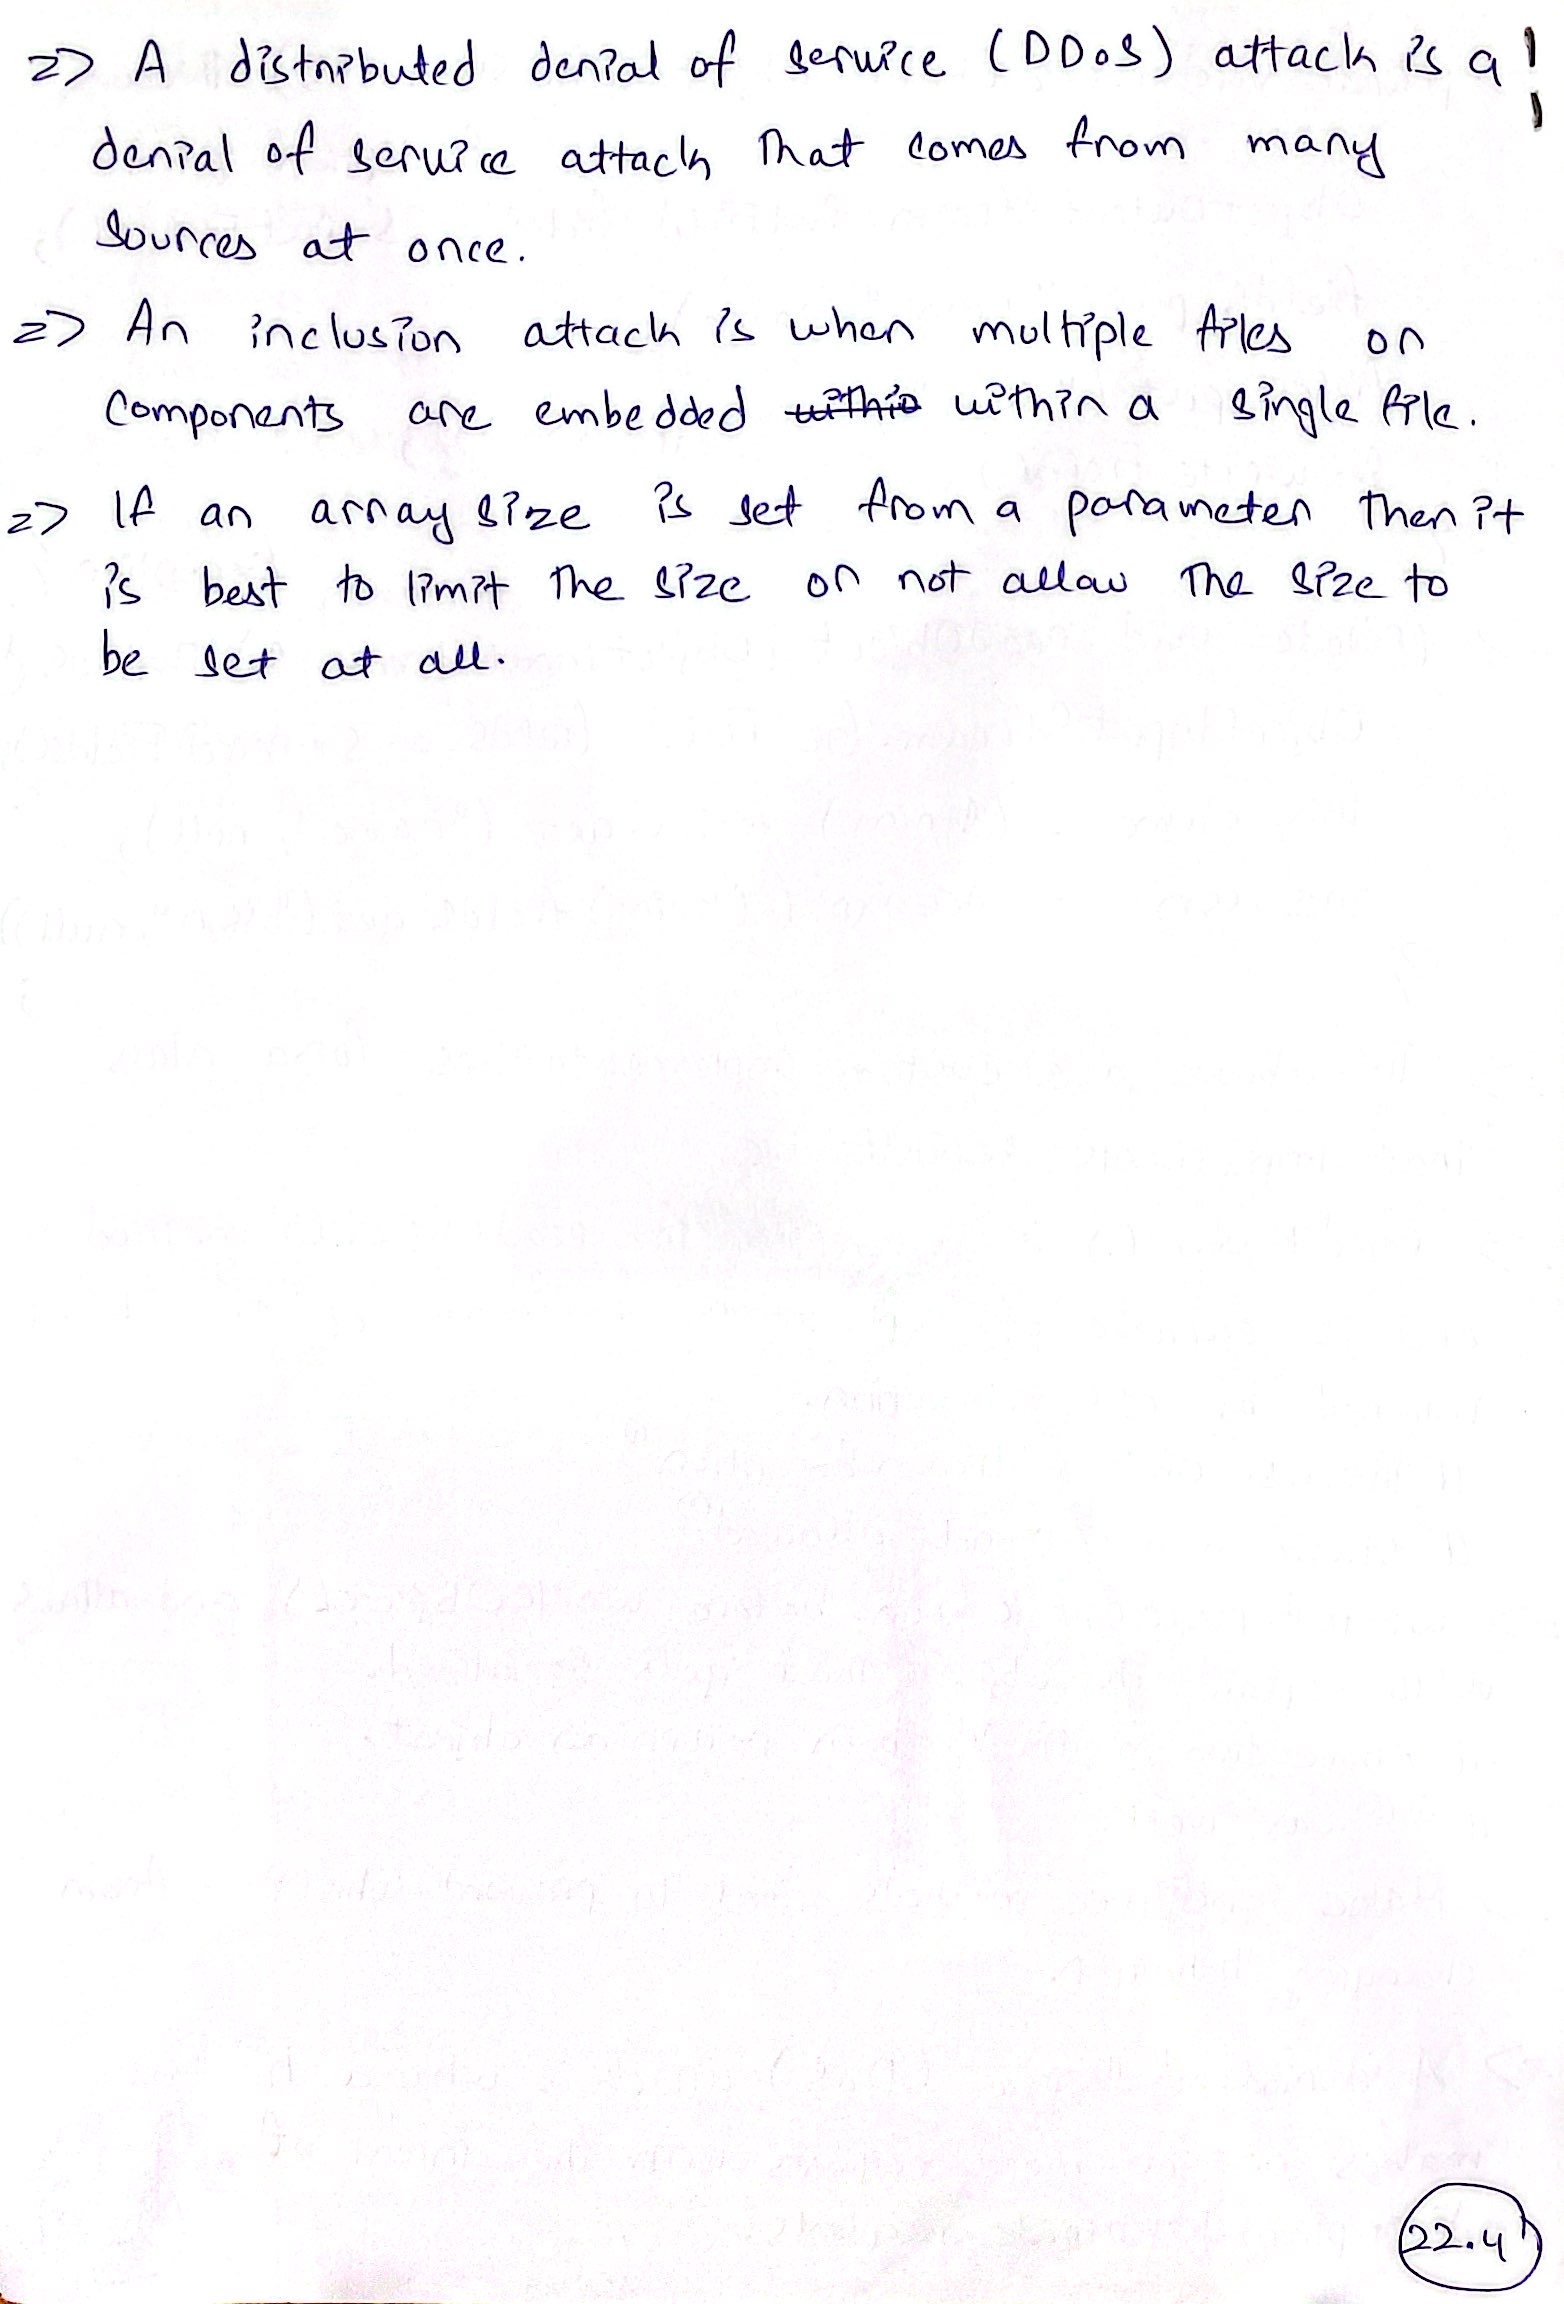 => A distributed denial of service (DDoS) attack is a
denial of service attack that comes from many
sources at once.
=> An inclusion attack is when multiple files or
components are embedded within within a single file.
=> If an array size is set from a parameter then it
is best to limit the size or not allow the size to
be set at all.
22.4